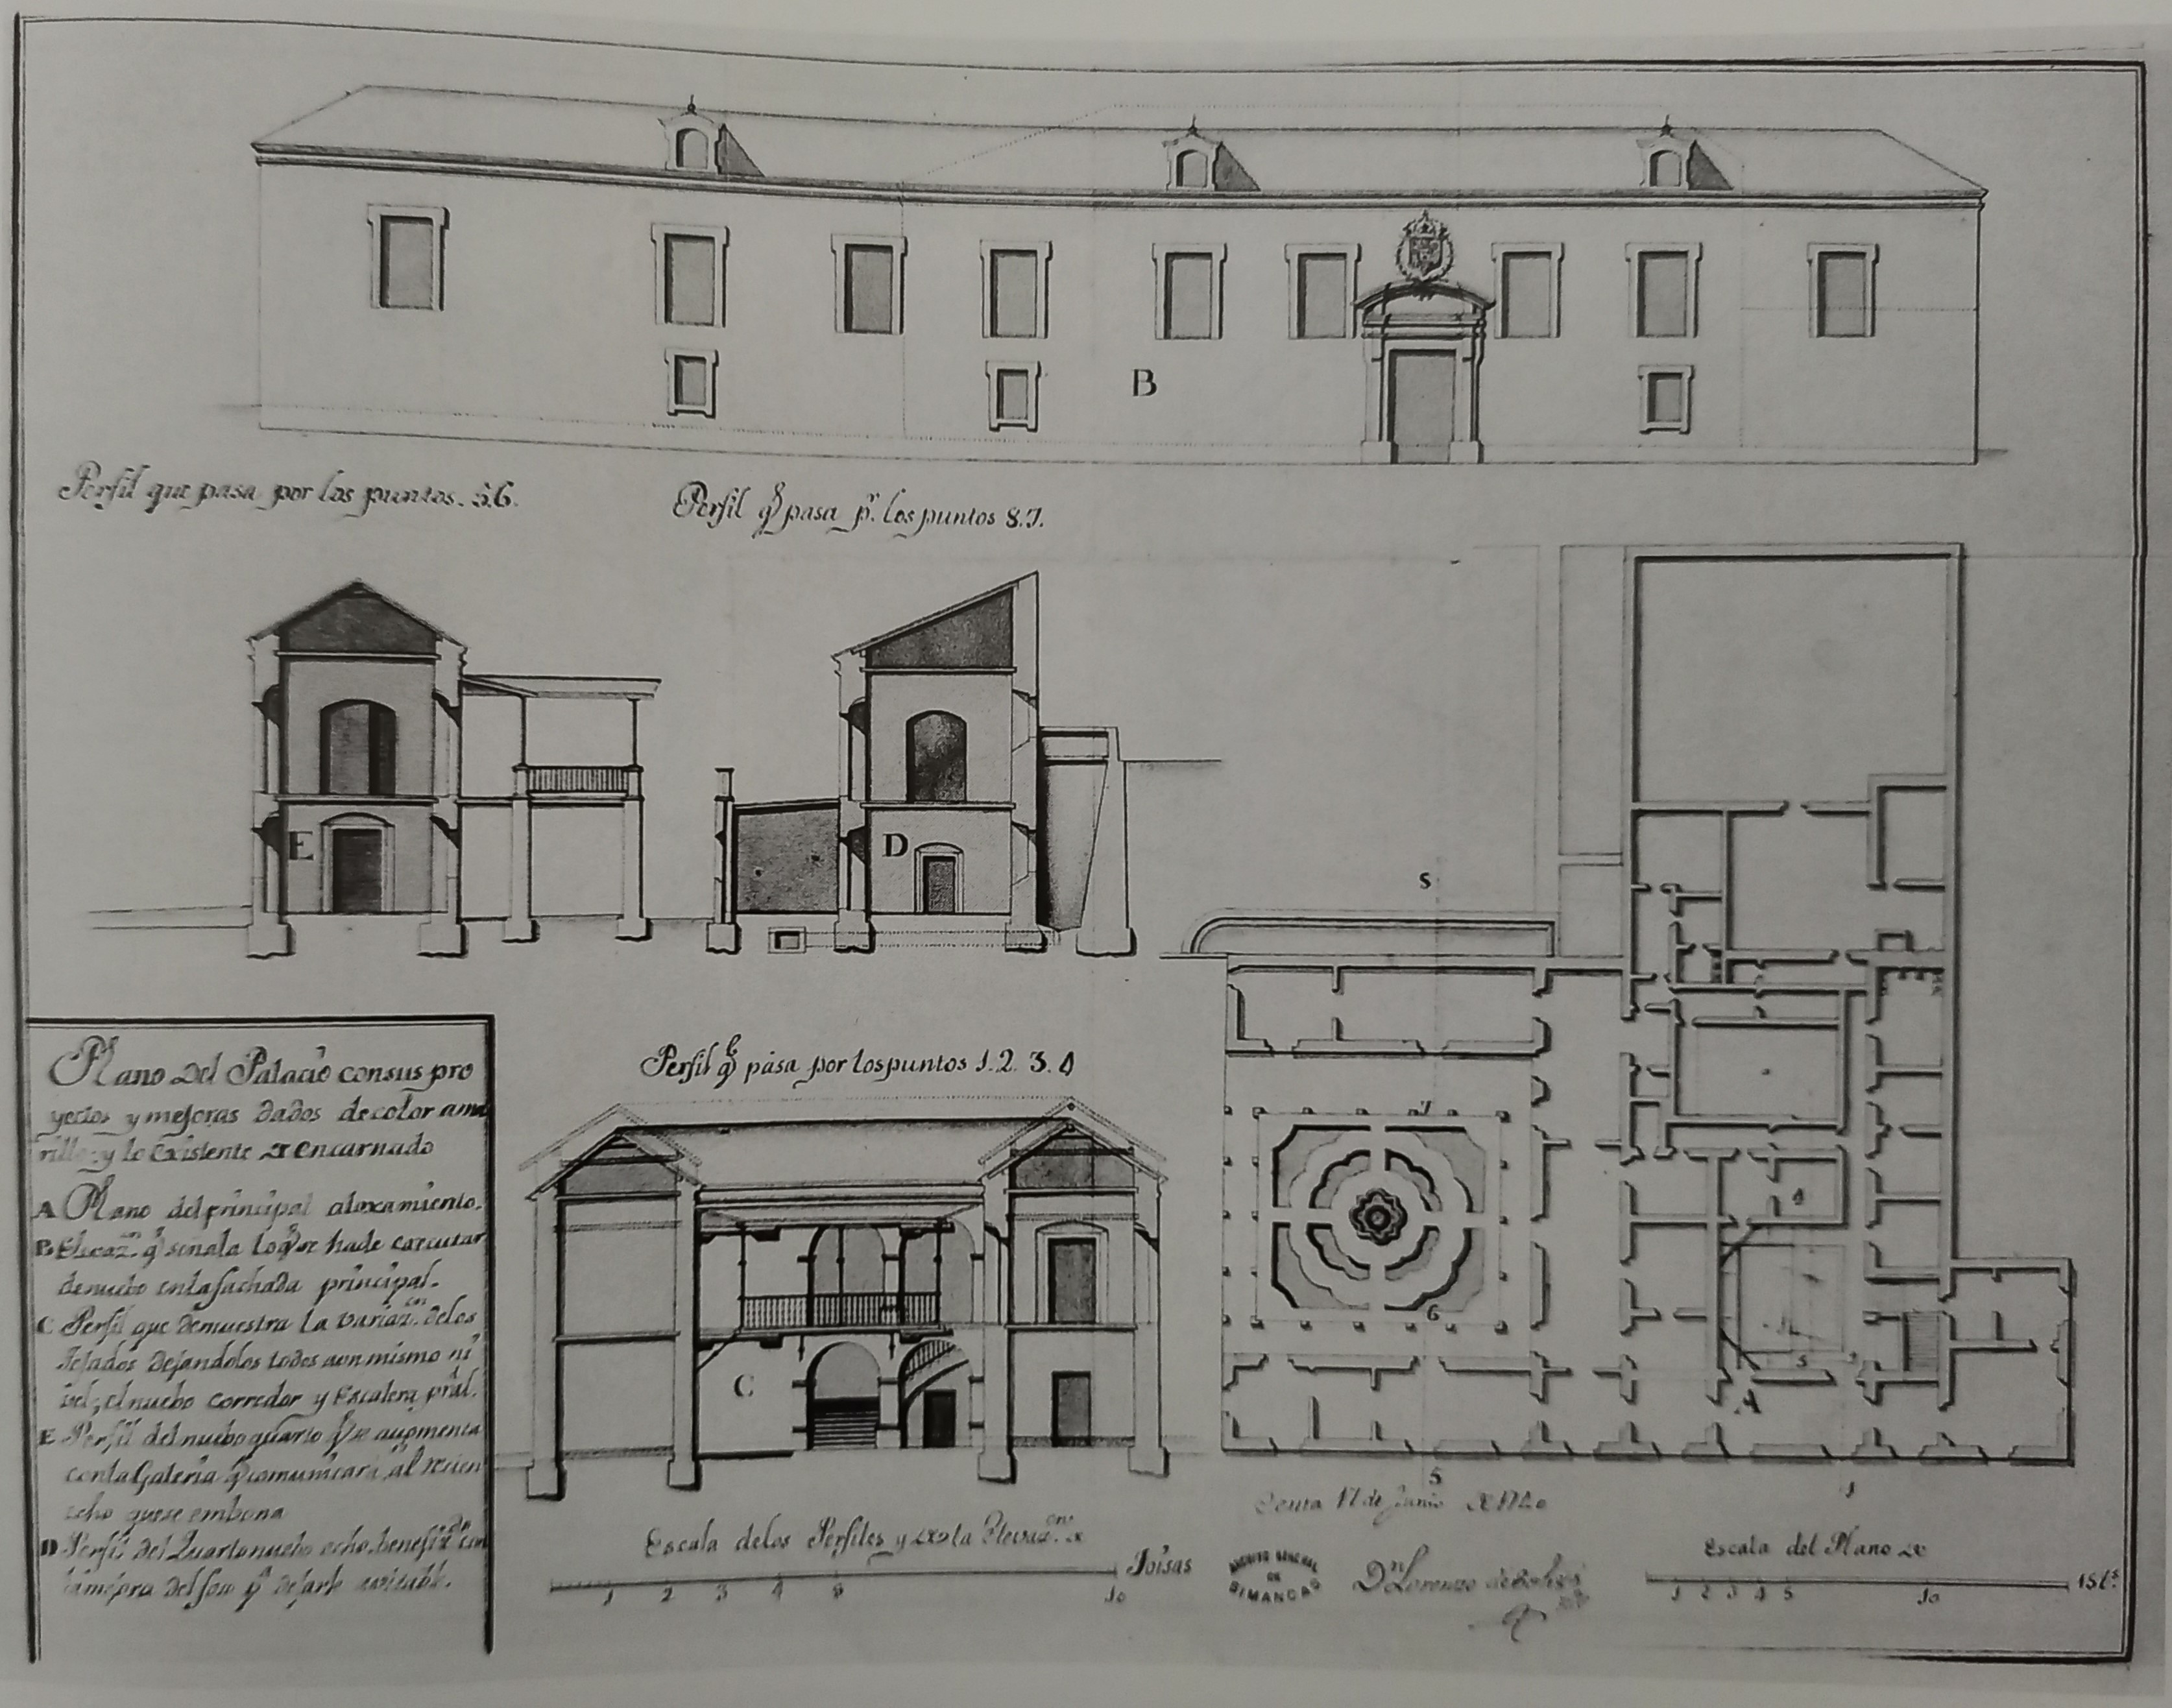 B
Perfil que pasa por los puntos. 5.6.
Perfil q̃ pasa pr. los puntos 8.7.
E
D
S
Plano Del Palacio consus pro
yectos y mejoras dados de color ama
rillo y lo Existente en encarnado
A Plano del principal aloxamiento.
B q̃ señala lo q̃ se ha de
de nuebo en la fachada principal.
C Perfil que demuestra la variazon. de los
Tejados dejandolos todos a un mismo ni
vel, el nuebo corredor y Escalera prãl.
E Perfil del nuebo quarto q̃ se augmenta
con la Galeria q̃ comunicara al
que se
D Perfil del Quarto nuebo
del q̃
Perfil q̃ pasa por los puntos 1. 2. 3. 4
C
7
6
4
3
A
5
1
Escala de los Perfiles y de la Elevazon.
1 2 3 4 5 10 Toisas
Ceuta 17 de Junio
ARCHIVO GENERAL
DE
SIMANCAS
Dn Lorenzo de
Escala del Plano
1 2 3 4 5 10 15 ts.